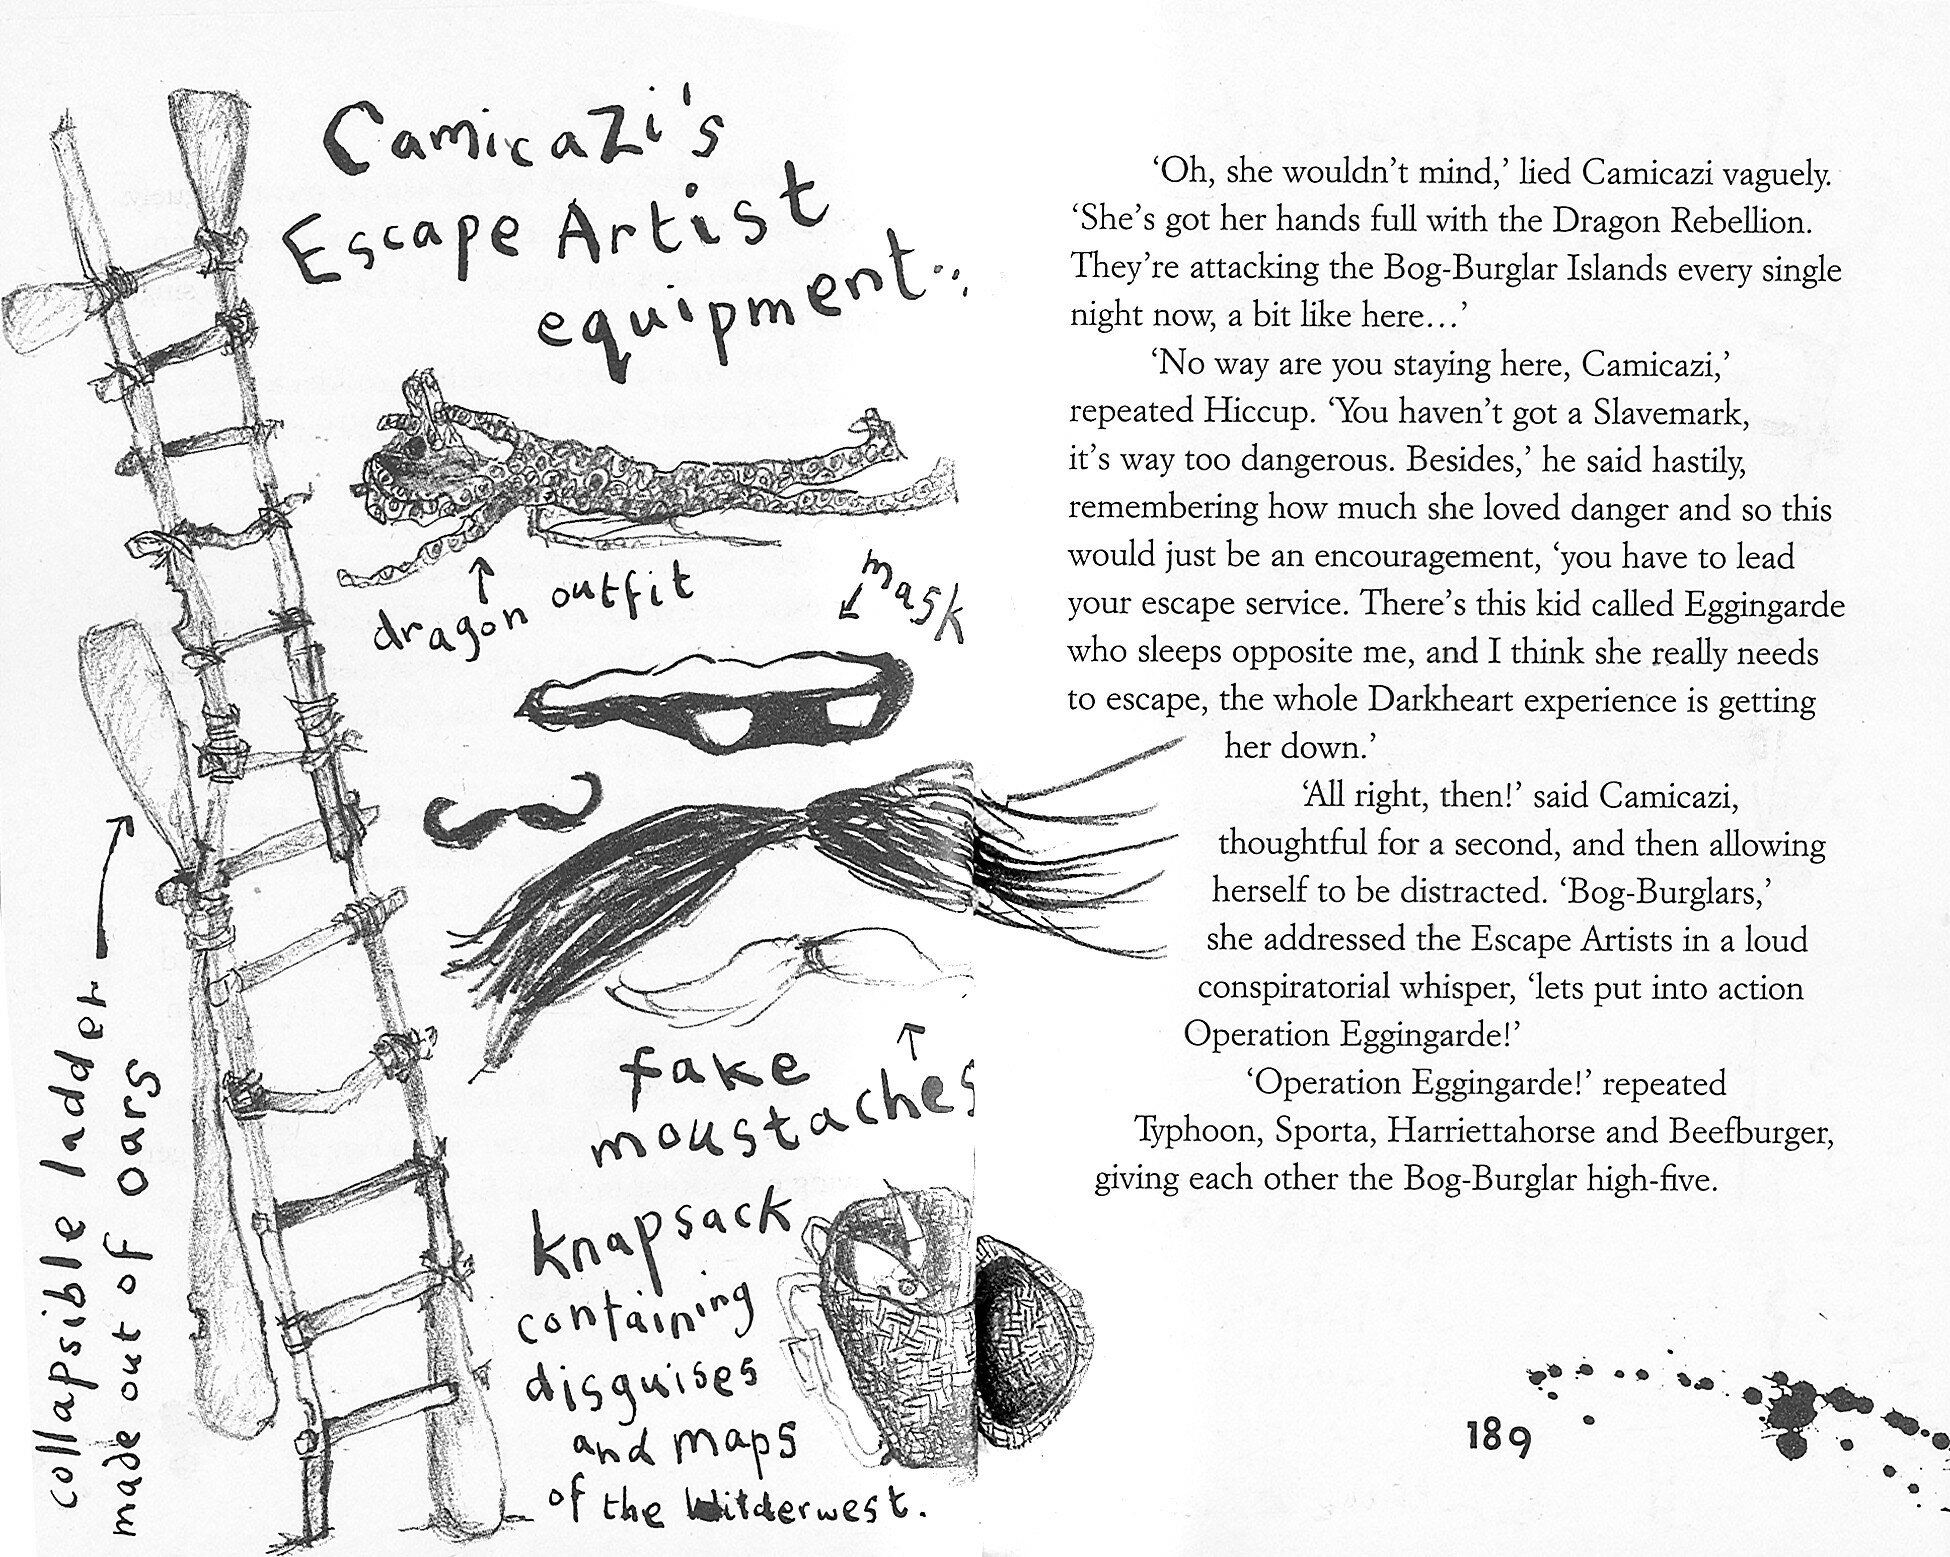 Camicazi's
Escape Artist
equipment..
dragon outfit
mask
fake
moustaches
collapsible ladder
made out of oars
knapsack
containing
disguises
and maps
of the Wilderwest.
‘Oh, she wouldn’t mind,’ lied Camicazi vaguely.
‘She’s got her hands full with the Dragon Rebellion.
They’re attacking the Bog-Burglar Islands every single
night now, a bit like here…’
‘No way are you staying here, Camicazi,’
repeated Hiccup. ‘You haven’t got a Slavemark,
it’s way too dangerous. Besides,’ he said hastily,
remembering how much she loved danger and so this
would just be an encouragement, ‘you have to lead
your escape service. There’s this kid called Eggingarde
who sleeps opposite me, and I think she really needs
to escape, the whole Darkheart experience is getting
her down.’
‘All right, then!’ said Camicazi,
thoughtful for a second, and then allowing
herself to be distracted. ‘Bog-Burglars,’
she addressed the Escape Artists in a loud
conspiratorial whisper, ‘lets put into action
Operation Eggingarde!’
‘Operation Eggingarde!’ repeated
Typhoon, Sporta, Harriettahorse and Beefburger,
giving each other the Bog-Burglar high-five.
189